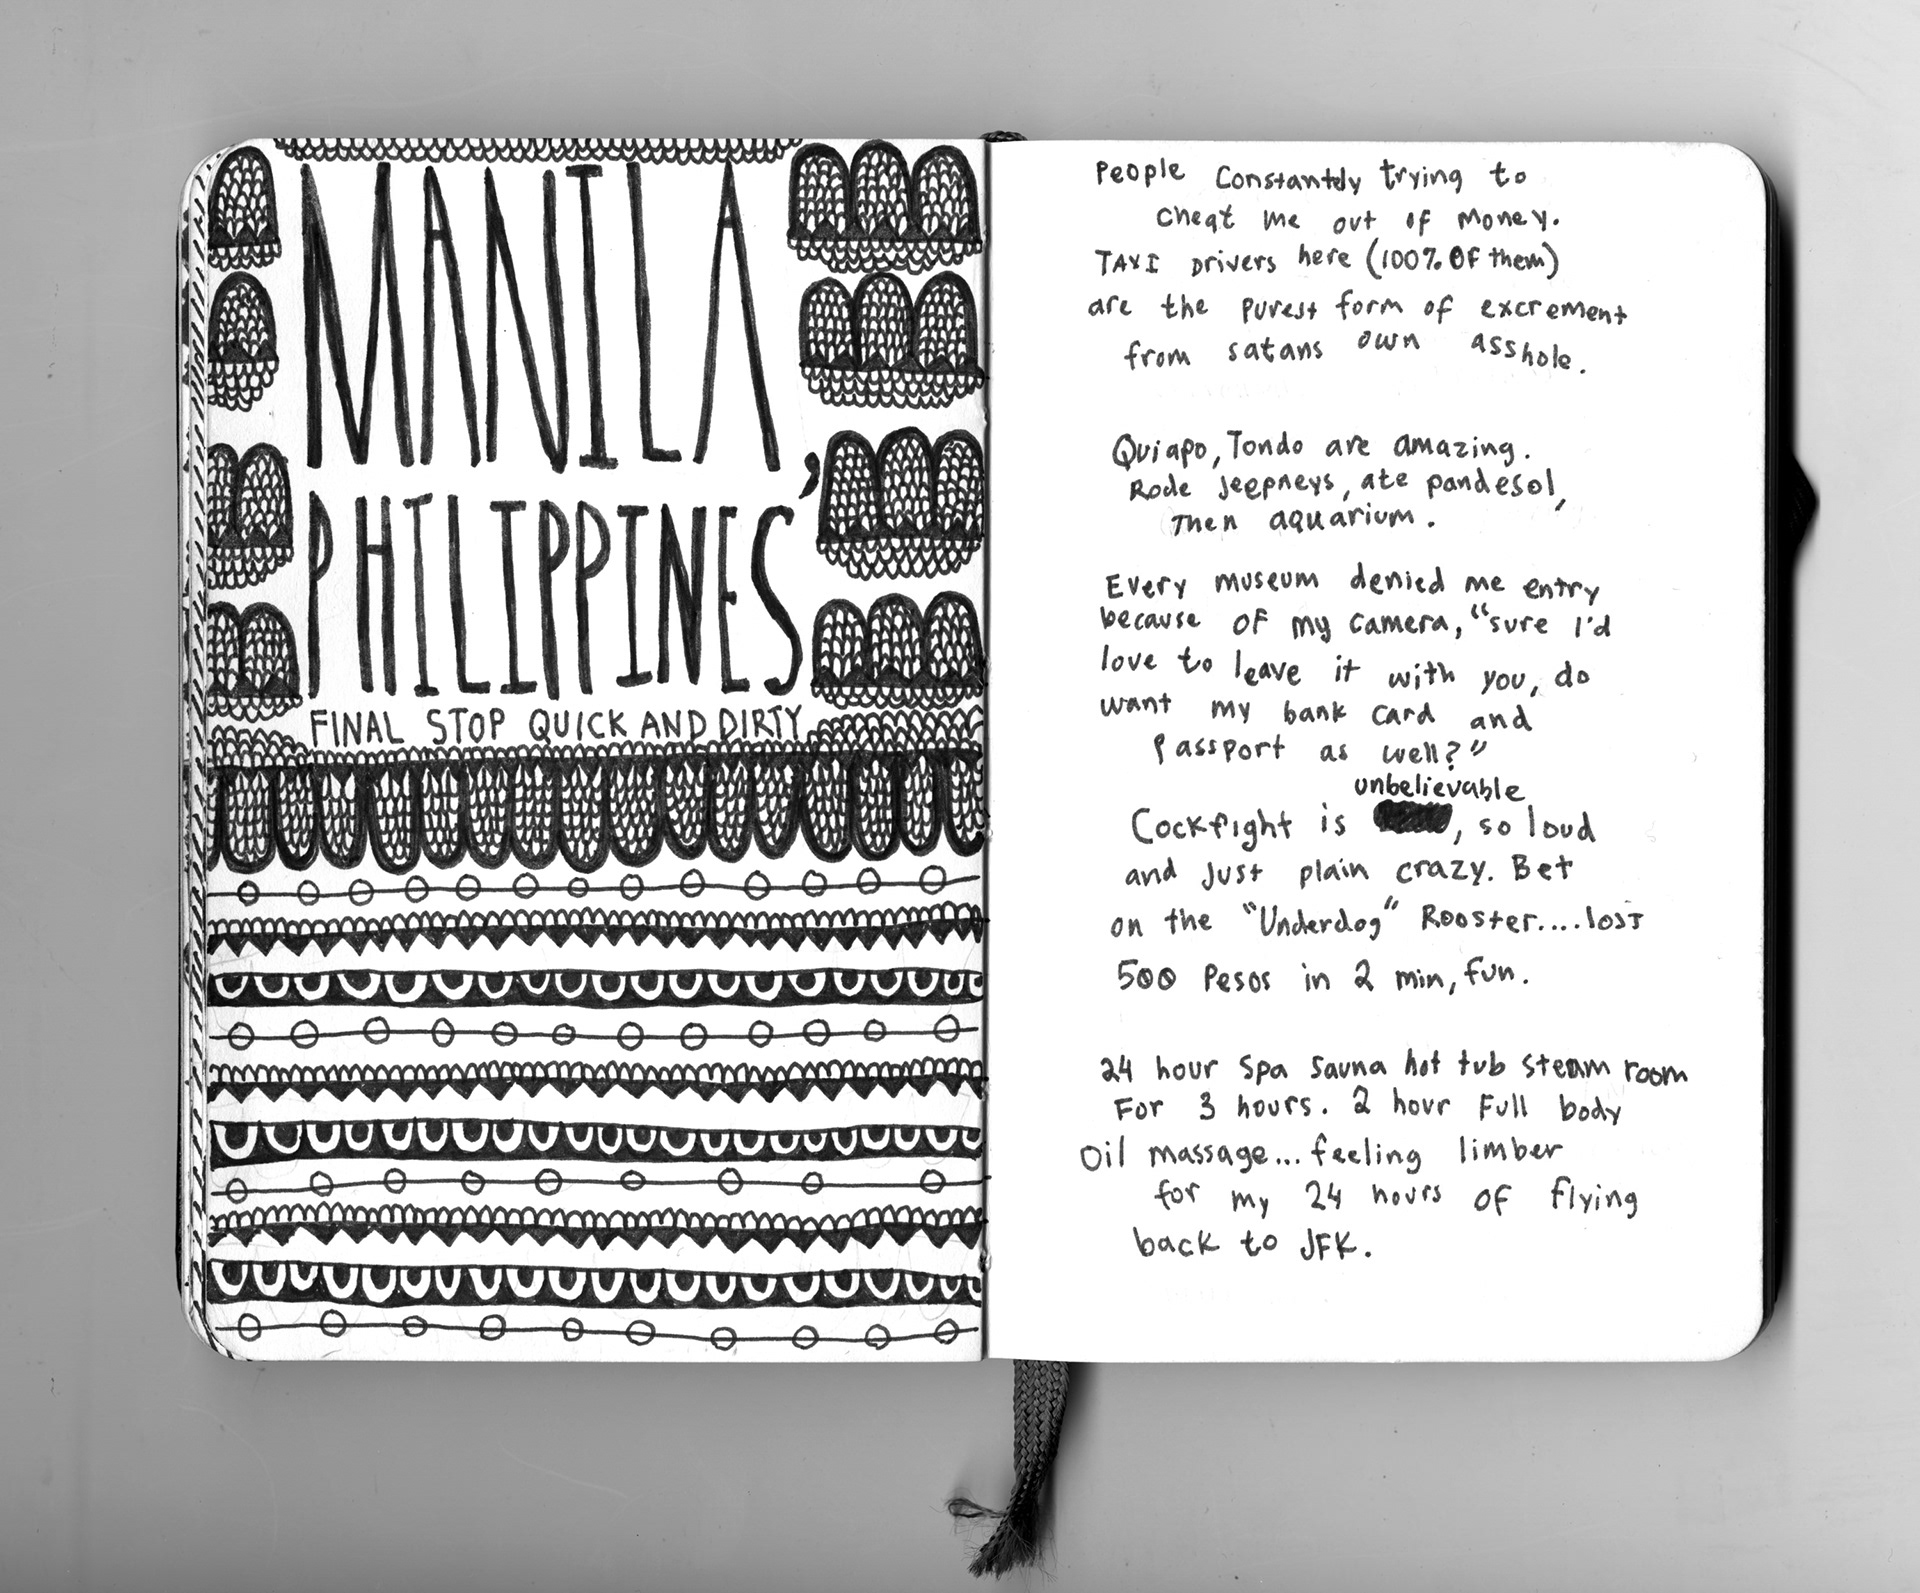 MANILA,
PHILIPPINES
FINAL STOP QUICK AND DIRTY
People Constantly trying to
cheat me out of money.
TAXI Drivers here (100% OF them)
are the purest form of excrement
from satans own asshole.
Quiapo, Tondo are amazing.
Rode jeepneys, ate pandesol,
Then aquarium.
Every museum denied me entry
because OF my camera, "sure I'd
love to leave it with you, do
want my bank card and
Passport as well?"
unbelievable
Cockfight is , so loud
and just plain crazy. Bet
on the "Underdog" Rooster....lost
500 Pesos in 2 min, fun.
24 hour Spa Sauna hot tub Steam room
For 3 hours. 2 hour Full body
Oil massage... feeling limber
for my 24 hours OF flying
back to JFK.